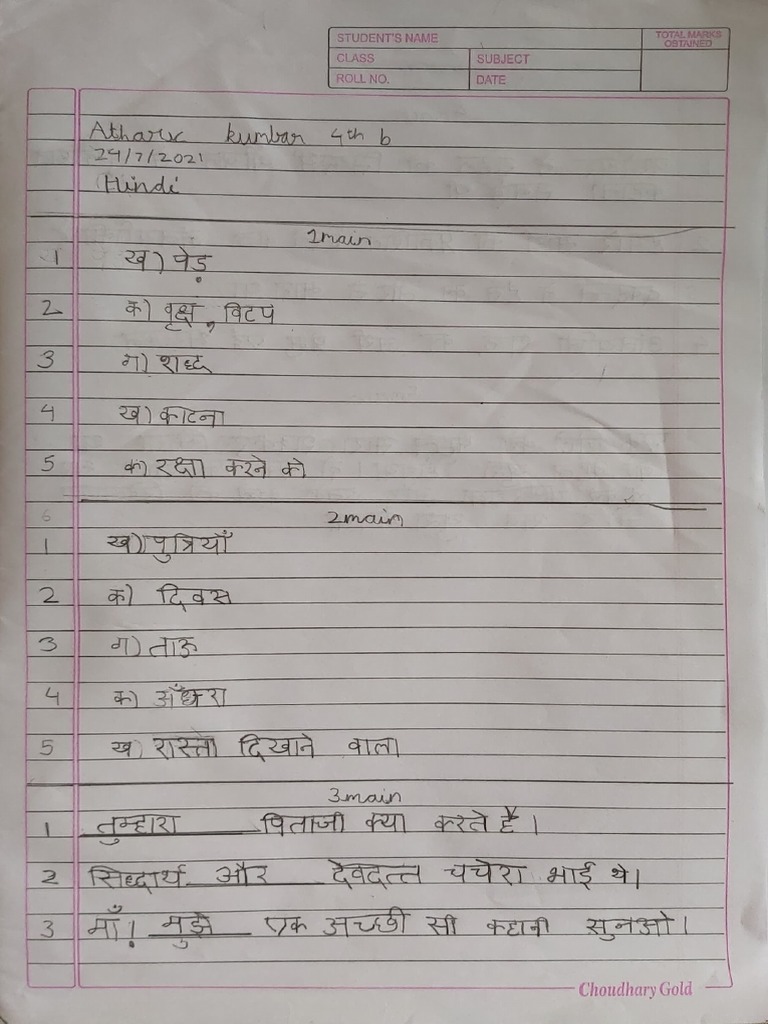 STUDENT'S NAME
TOTAL MARKS OBTAINED
CLASS
SUBJECT
ROLL NO.
DATE
Atharv kumbar 4th b
24/7/2021
Hindi
1main
1 ख) पेड़
2 क) वृक्ष, विटप
3 ग) शब्द
4 ख) काटना
5 क) रक्षा करने को
6 2main
1 ख) पुत्रियाँ
2 क) दिवस
3 ग) ताऊ
4 क) अँधेरा
5 ख) रास्ता दिखाने वाला
3main
1 तुम्हारा पिताजी क्या करते है।
2 सिद्धार्थ और देवदत्त चचेरा भाई थे।
3 माँ! मुझे एक अच्छी सी कहानी सुनओ।
Choudhary Gold